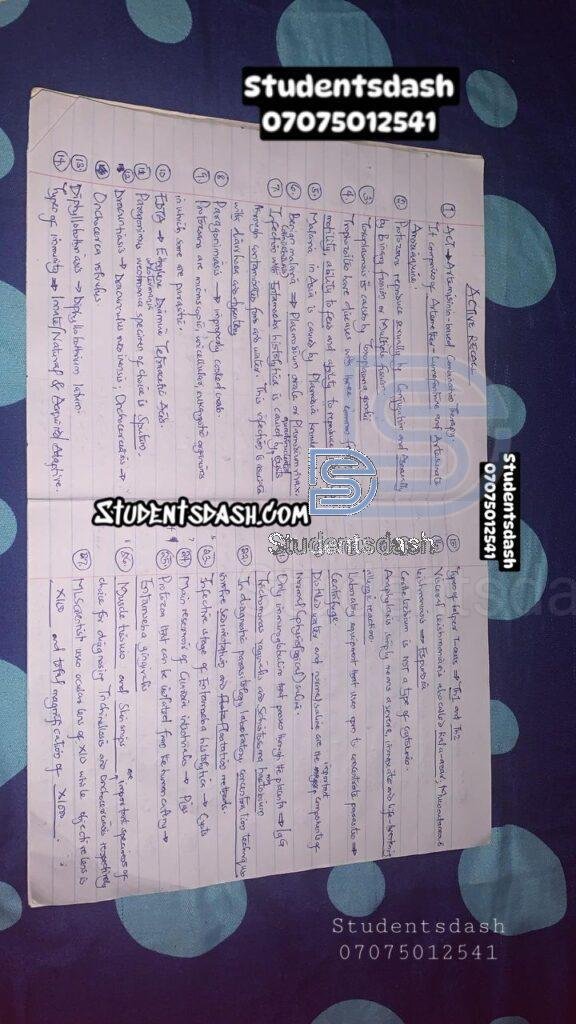 Studentsdash
07075012541
ACTIVE RECALL
① ACT → Artemisinin-based Combination Therapy.
It comprises of Artemether-Lumefantrine and Artesunate
Amodiaquine.
② Protozoans reproduce sexually by Conjugation and Asexually
by Binary fission or Multiple fission.
③ Toxoplasmosis is caused by Toxoplasma gondii
④ Trophozoites cause diseases with three common
motility, ability to feed and ability to reproduce
⑤ Malaria in Asia is caused by Plasmodium
⑥ Benign malaria → Plasmodium ovale or Plasmodium vivax.
⑦ Infection with Entamoeba histolytica is caused by Cysts
through contaminated food and water. This infection is
with diarrhoea and dysentery
⑧ Paragonimiasis → improperly cooked crab.
⑨ Protozoans are microscopic, unicellular, eukaryotic organisms
in which some are parasitic.
⑩ EDTA → Ethylene Diamine Tetraacetic Acid.
⑪ Paragonimus westermani specimen of choice is Sputum
⑫ Onchocerciasis →
Onchocerca volvulus
⑬ Diphyllobothriasis → Diphyllobothrium latum.
⑭ Types of immunity → Innate/Natural & Acquired/Adaptive.
Types of helper T-cells → Th1 and Th2
Visceral leishmaniasis also called Kala-azar, Mucocutaneous
leishmaniasis → Espundia
is not a type of
Anaphylaxis simply means a severe, immediate and life-threatening
allergic reaction.
Laboratory equipment that uses rpm to concentrate parasites →
Centrifuge
Distilled water and normal saline are the important components of
normal (physiological) saline.
Only immunoglobulin that passes through the placenta → IgG
Trichomonas vaginalis and Schistosoma haematobium
In diagnostic parasitology laboratory, concentration techniques
are sedimentation and floatation methods.
㉓ Infective stage of Entamoeba histolytica → Cysts
㉔ Main reservoir of Giardia intestinalis → Pigs
㉕ Protozoa that can be isolated from the human cavity →
Entamoeba gingivalis
㉖ Muscle tissues and Skin snips are important specimens of
choice for diagnosing Trichinellosis and Onchocerciasis respectively
㉗ MLScientist uses ocular lens of X10 while objective lens is
X10 and total magnification of X100.
Studentsdash
07075012541
STUDENTSDASH.COM
Studentsdash
Studentsdash
07075012541